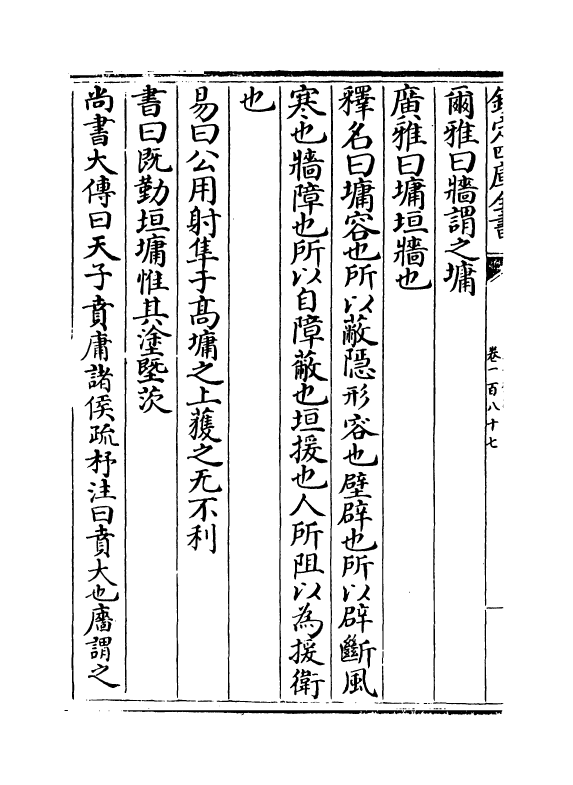 欽定四庫全書
卷一百八十七
爾雅曰牆謂之墉
廣雅曰墉垣牆也
釋名曰墉容也所以蔽隱形容也壁辟也所以辟斷風
寒也牆障也所以自障蔽也垣援也人所阻以為援衛
也
易曰公用射隼于髙墉之上獲之无不利
書曰既勤垣墉惟其塗墍茨
尚書大傳曰天子賁庸諸侯疏杼注曰賁大也牆謂之